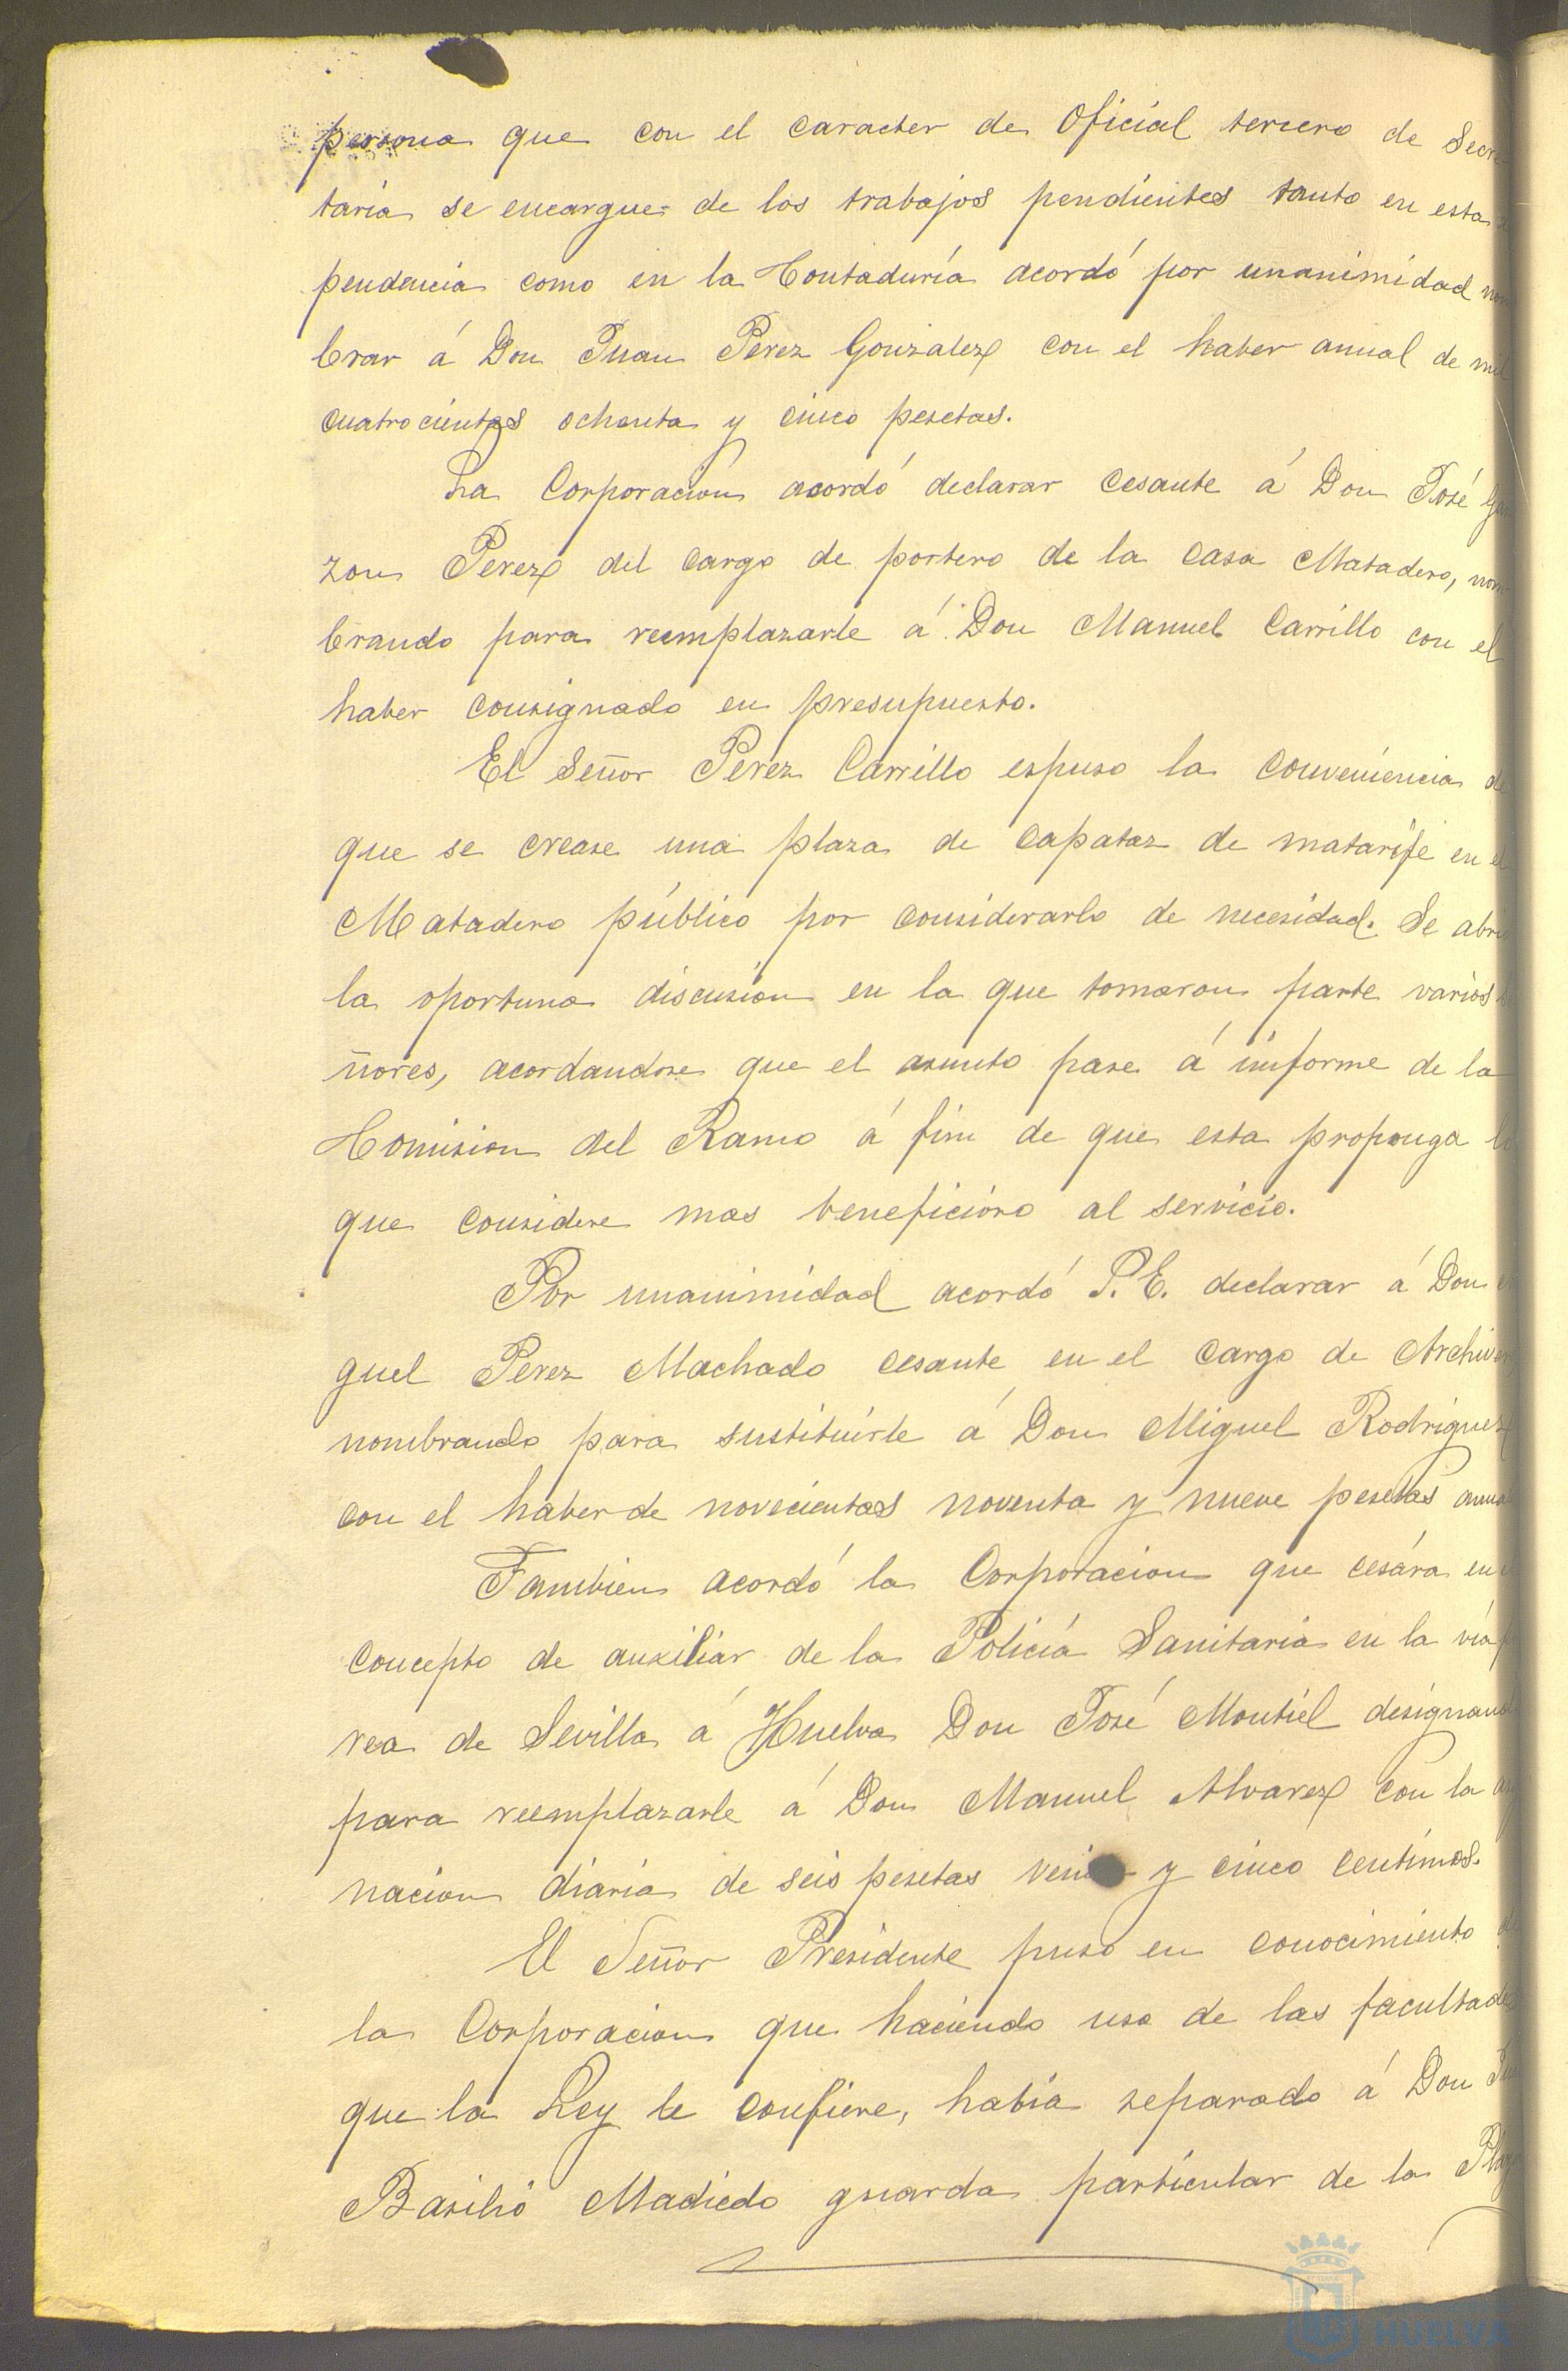 persona que con el caracter de Oficial tercero de Secre
taria se encargue de los trabajos pendientes tanto en esta
pendencia como en la Contaduría acordó por unanimidad nom
brar á Don Juan Perez Gonzalez con el haber anual de mil
cuatrocientas ochenta y cinco pesetas.
La Corporación acordó declarar cesante á Don José Ga
zon Perez del cargo de portero de la casa Matadero, nom
brando para reemplazarle á Don Manuel Carrillo con el
haber consignado en presupuesto.
El Señor Perez Carrillo espuso la conveniencia de
que se crease una plaza de capataz de matarife en el
Matadero público por considerarlo de necesidad. Se abr
la oportuna discusion en la que tomaron parte varios
ñores, acordandose que el asunto pase á informe de la
Comision del Ramo á fin de que esta proponga lo
que considere mas beneficioso al servicio.
Por unanimidad acordó S.E. declarar á Don
guel Perez Machado cesante en el cargo de Archiver
nombrando para sustituirle á Don Miguel Rodriguez
con el haber de novecientas noventa y nueve pesetas anual
Tambien acordó la Corporacion que cesára en
concepto de auxiliar de la Policía Sanitaria en la vía
rea de Sevilla á Huelva Don José Montiel designand
para reemplazarle á Don Manuel Alvarez con la
nacion diaria de seis pesetas vein y cinco centimos.
El Señor Presidente puso en conocimiento d
la Corporacion que haciendo uso de las facultades
que la Ley le confiere, habia separado á Don
Basilio Madiedo guarda particular de la Pla
HUELVA